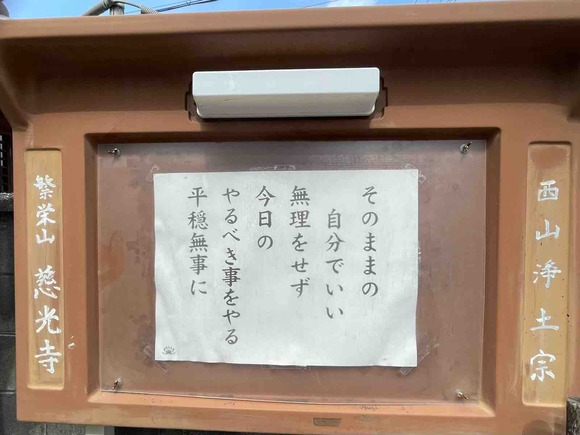 西山浄土宗
そのままの
自分でいい
無理をせず
今日の
やるべき事をやる
平穏無事に
繁栄山 慈光寺